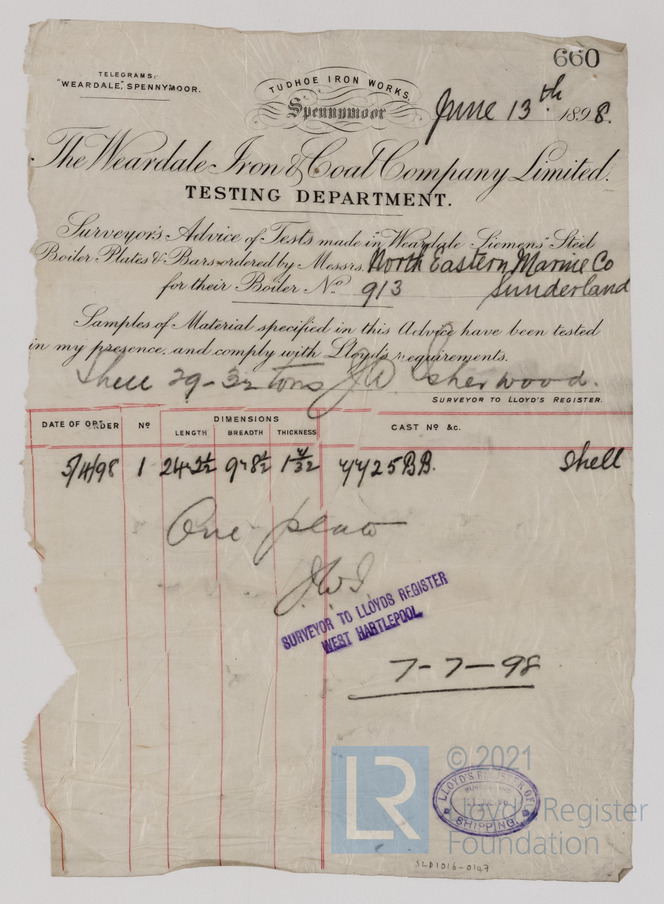 660
TELEGRAMS:
"WEARDALE," SPENNYMOOR.
TUDHOE IRON WORKS.
Spennymoor
June 13th 1898.
The Weardale Iron & Coal Company Limited.
TESTING DEPARTMENT.
Surveyor's Advice of Tests made in "Weardale Siemens" Steel
Boiler Plates & Bars ordered by Messrs. North Eastern Marine Co
for their Boiler No. 913 Sunderland
Samples of Material specified in this Advice have been tested
in my presence, and comply with Lloyd's requirements.
Shell 29-32 tons J.W. Isherwood.
SURVEYOR TO LLOYD'S REGISTER.
DATE OF ORDER No DIMENSIONS CAST No &c.
LENGTH BREADTH THICKNESS
5/4/98 1 9-8½ 1 4/32 4425BB. Shell
One plate
J.W.I.
SURVEYOR TO LLOYDS REGISTER
WEST HARTLEPOOL
7-7-98
LLOYD'S REGISTER OF
SHIPPING.
LR
© 2021
Lloyd's Register
Foundation
SLD1016-0147